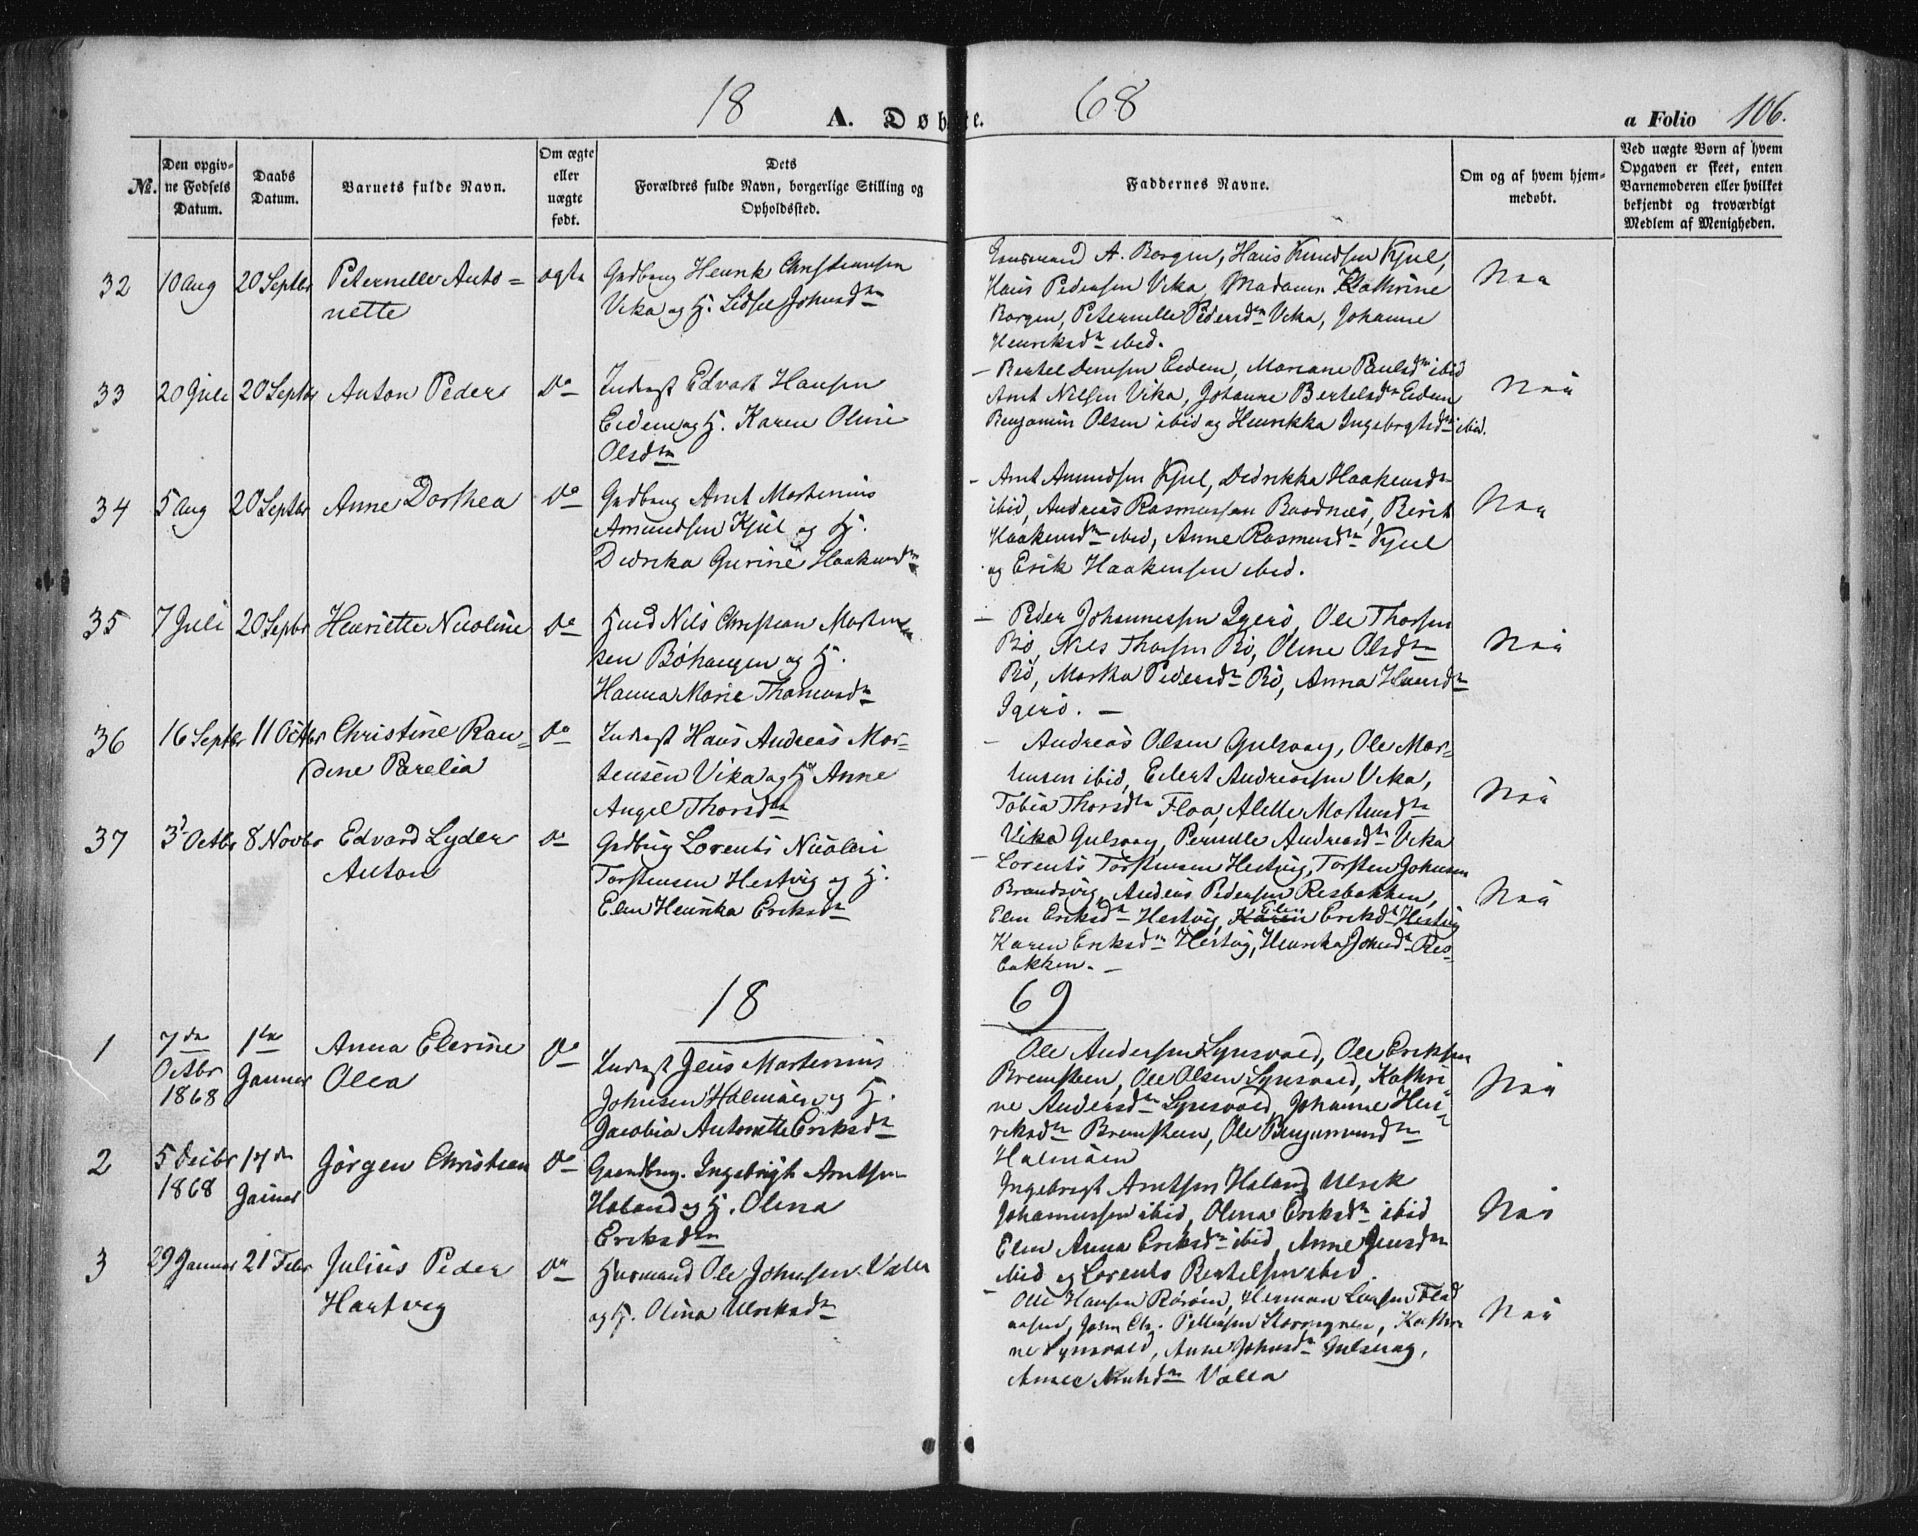 18 68
A. Døbte.
a Folio 106.
No.
Den opgiv-
ne Fødsels
Datum.
Daabs
Datum.
Barnets fulde Navn.
Om ægte
eller
uægte
født.
Dets
Forældres fulde Navn, borgerlige Stilling og
Opholdssted.
Faddernes Navne.
Om og af hvem hjem-
medøbt.
Ved uægte Børn af hvem
Opgaven er skeet, enten
Barnemoderen eller hvilket
bekjendt og troværdigt
Medlem af Menigheden.
32 10 Aug 20 Septbr Peternelle Anto=
nette
ægte
Grdbrug Henrik Christiansen
Vika og H. Lidsel Johnsdtr
A. Borgen, Hans Knudsen Kjul,
Hans Pedersen Vika, Madame Kathrine
Borgen, Peternelle Pedersdtr Vika, Johanne
Henriksdtr ibid.
Nei
33 20 Juli 20 Septbr Anton Peder
Do
Inderst Edvart Hansen
Eidem og H. Karen Oline
Olsdtr
- Bertel Eidem, Mariane Paulsdtr ibid
Arnt Nilsen Vika, Johanne Bertelsdtr Eidem
Benjamin Olsen ibid og Henrikka Ingebrigtsdtr ibid.
Nei
34 5 Aug 20 Septbr Anne Dorthea
Do
Grdbrug Arnt Martenius
Amundsen Kjul og H.
Didrika Gurine Haakensdtr
- Arnt Amundsen Kjul, Dedrikka Haakensdtr
ibid, Andreas Rasmussen Baadnæs, Berit
Haakensdtr ibid, Anne Rasmusdtr Kjul
og Erik Haakensen ibid.
Nei
35 7 Juli 20 Septbr Henriette Nicoline
Do
Husmd Nils Christian Morten
sen Bøhaugen og H.
Hanna Marie Thomasdtr
- Peder Johannessen Igerø, Ole Thorsen
Bø, Nils Thorsen Bø, Oline Olsdtr
Bø, Martha Pedersdtr Bø, Anna Hansdtr
Igerø. -
Nei
36 16 Septbr 11 Octbr Christine Ran=
dine Parelia
Do
Inderst Hans Andreas Mor-
tensen Vika og H. Anne
Angel Thorsdtr
- Andreas Olsen Gulsvaag, Ole Mor-
tensen ibid, Eilert Andreassen Vika,
Tobia Thorsdtr Floa, Alette Mortensdtr
Vika Gulsvaag, Pernelle Andreasdtr Vika
Nei
37 3 Octbr 8 Novbr Edvard Lyder
Anton
Do
Grdbrug Lorents Nicolai
Torstensen Hestvig og H.
Elen Henrika Eriksdtr
- Lorents Torstensen Hestvig, Torsten Johnsen
Brandsvig, Andreas Pedersen Resbakken,
Elen Eriksdtr Hestvig, Eriksdtr Hestvig
Karen Eriksdtr Hestvig, Henrika Johnsdtr Res-
bakken. -
Nei
18 69
1 7de
Octbr
1868
1ste
Januar
Anna Elerine
Olea
Do
Inderst Jens Martenius
Johnsen Halmøen og H.
Jacobia Antonette Eriksdtr
Ole Andersen Lynsvold, Ole Eriksen
Bremsteen, Ole Olsen Lynsvold, Kathri
ne Andersdtr Lynsvold, Johanne Hen-
riksdtr Bremsteen, Ole
Halmøen
Nei
2 5 Decbr
1868
17de
Januar
Jørgen Christian
Do
Gaardbrug. Ingebrigt Arntsen
Haland og H. Olina
Eriksdtr
Ingebrigt Arntsen Haland, Ulrik
Johannessen ibid, Olina Eriksdtr ibid
Elen Anna Eriksdtr ibid, Anne Jensdtr
ibid og Lorents Bertelsen ibid.
Nei
3 29 Januar 21 Febr Julius Peder
Hartvig
Do
Husmand Ole Johnsen Valla
og H. Olina Ulriksdtr
- Olle Hansen Rørøen, Herman Larsen
Kathri
ne Lynsvold, Anne Johnsdtr Gulsvaag,
Anne Arntsdtr Valla
Nei